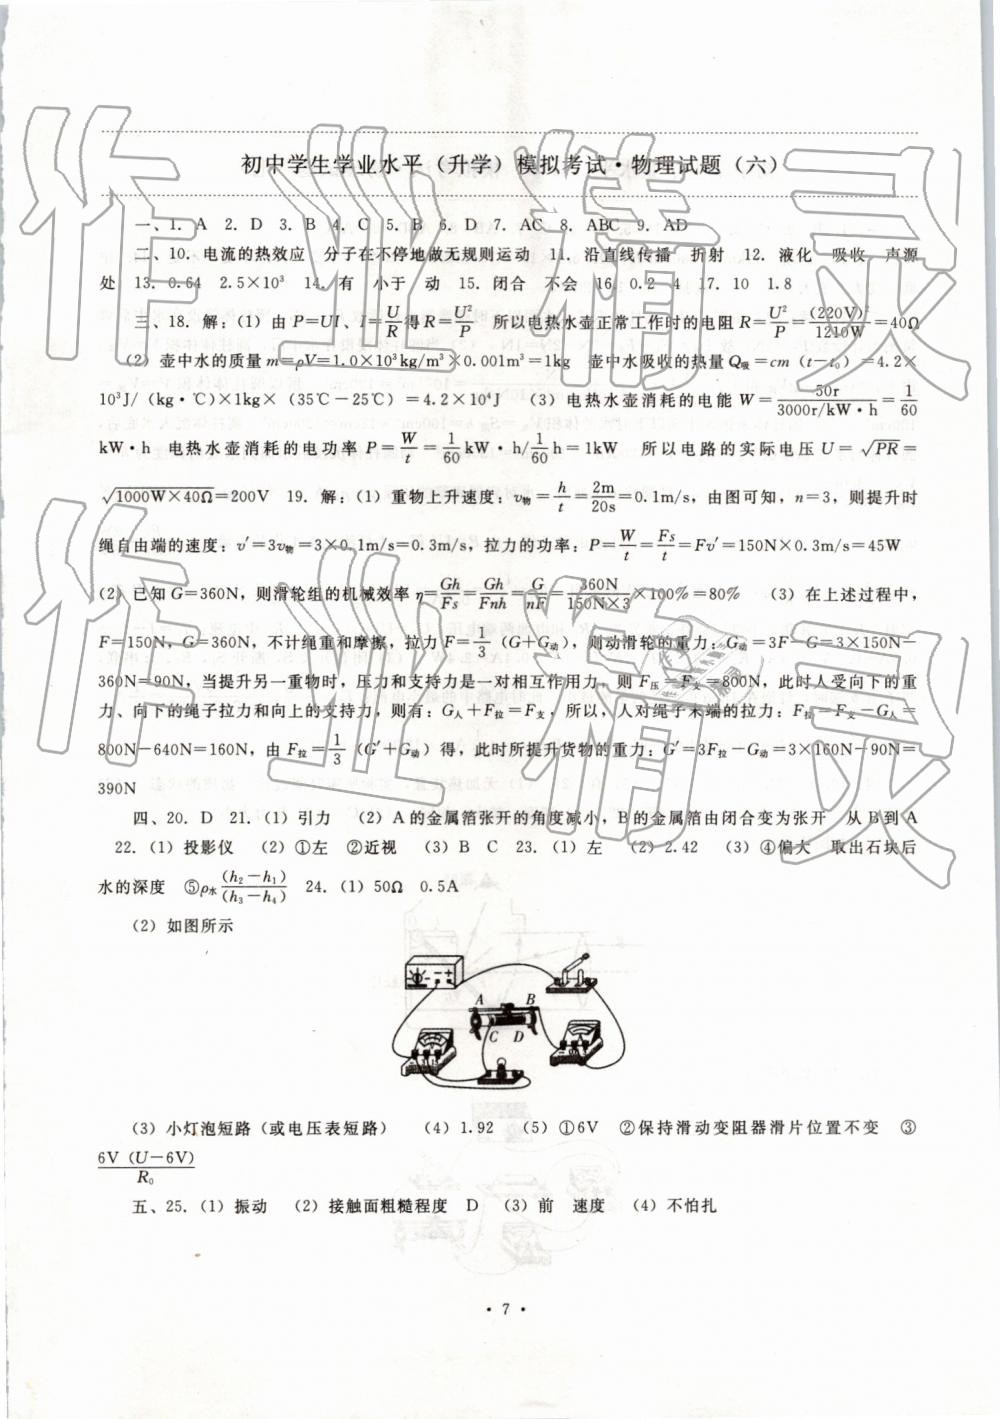 初中学生学业水平（升学）模拟考试·物理试题（六）
一、1. A 2. D 3. B 4. C 5. B 6. D 7. AC 8. ABC 9. AD
二、10. 电流的热效应 分子在不停地做无规则运动 11. 沿直线传播 折射 12. 液化 吸收 声源
处 13. 0.64 2.5×10³ 14. 有 小于 动 15. 闭合 不会 16. 0.2 4 17. 10 1.8
三、18. 解：(1) 由 P=UI、I=U/R 得 R=U²/P 所以电热水壶正常工作时的电阻 R=U²/P=(220V)²/1210W=40Ω
(2) 壶中水的质量 m=ρV=1.0×10³kg/m³×0.001m³=1kg 壶中水吸收的热量 Q吸=cm（t-t₀）=4.2×
10³J/（kg·℃）×1kg×（35℃-25℃）=4.2×10⁴J (3) 电热水壶消耗的电能 W=50r/3000r/kW·h=1/60
kW·h 电热水壶消耗的电功率 P=W/t=1/60kW·h/1/60h=1kW 所以电路的实际电压 U=√PR=
√1000W×40Ω=200V 19. 解：(1) 重物上升速度：v物=h/t=2m/20s=0.1m/s，由图可知，n=3，则提升时
绳自由端的速度：v′=3v物=3×0.1m/s=0.3m/s，拉力的功率：P=W/t=Fs/t=Fv′=150N×0.3m/s=45W
(2) 已知 G=360N，则滑轮组的机械效率 η=Gh/Fs=Gh/Fnh=G/nF=360N/150N×3×100%=80% (3) 在上述过程中，
F=150N，G=360N，不计绳重和摩擦，拉力 F=1/3（G+G动），则动滑轮的重力：G动=3F-G=3×150N-
360N=90N，当提升另一重物时，压力和支持力是一对相互作用力，则 F压=F支=800N，此时人受向下的重
力、向下的绳子拉力和向上的支持力，则有：G人+F拉=F支，所以，人对绳子末端的拉力：F拉=F支-G人=
800N-640N=160N，由 F拉=1/3（G′+G动）得，此时所提升货物的重力：G′=3F拉-G动=3×160N-90N=
390N
四、20. D 21. (1) 引力 (2) A 的金属箔张开的角度减小，B 的金属箔由闭合变为张开 从 B 到 A
22. (1) 投影仪 (2) ①左 ②近视 (3) B C 23. (1) 左 (2) 2.42 (3) ④偏大 取出石块后
水的深度 ⑤ρ水(h₂-h₁)/(h₃-h₄) 24. (1) 50Ω 0.5A
(2) 如图所示
A B
C D
(3) 小灯泡短路（或电压表短路） (4) 1.92 (5) ①6V ②保持滑动变阻器滑片位置不变 ③
6V（U-6V）/R₀
五、25. (1) 振动 (2) 接触面粗糙程度 D (3) 前 速度 (4) 不怕扎
· 7 ·
作业精灵
作业精灵